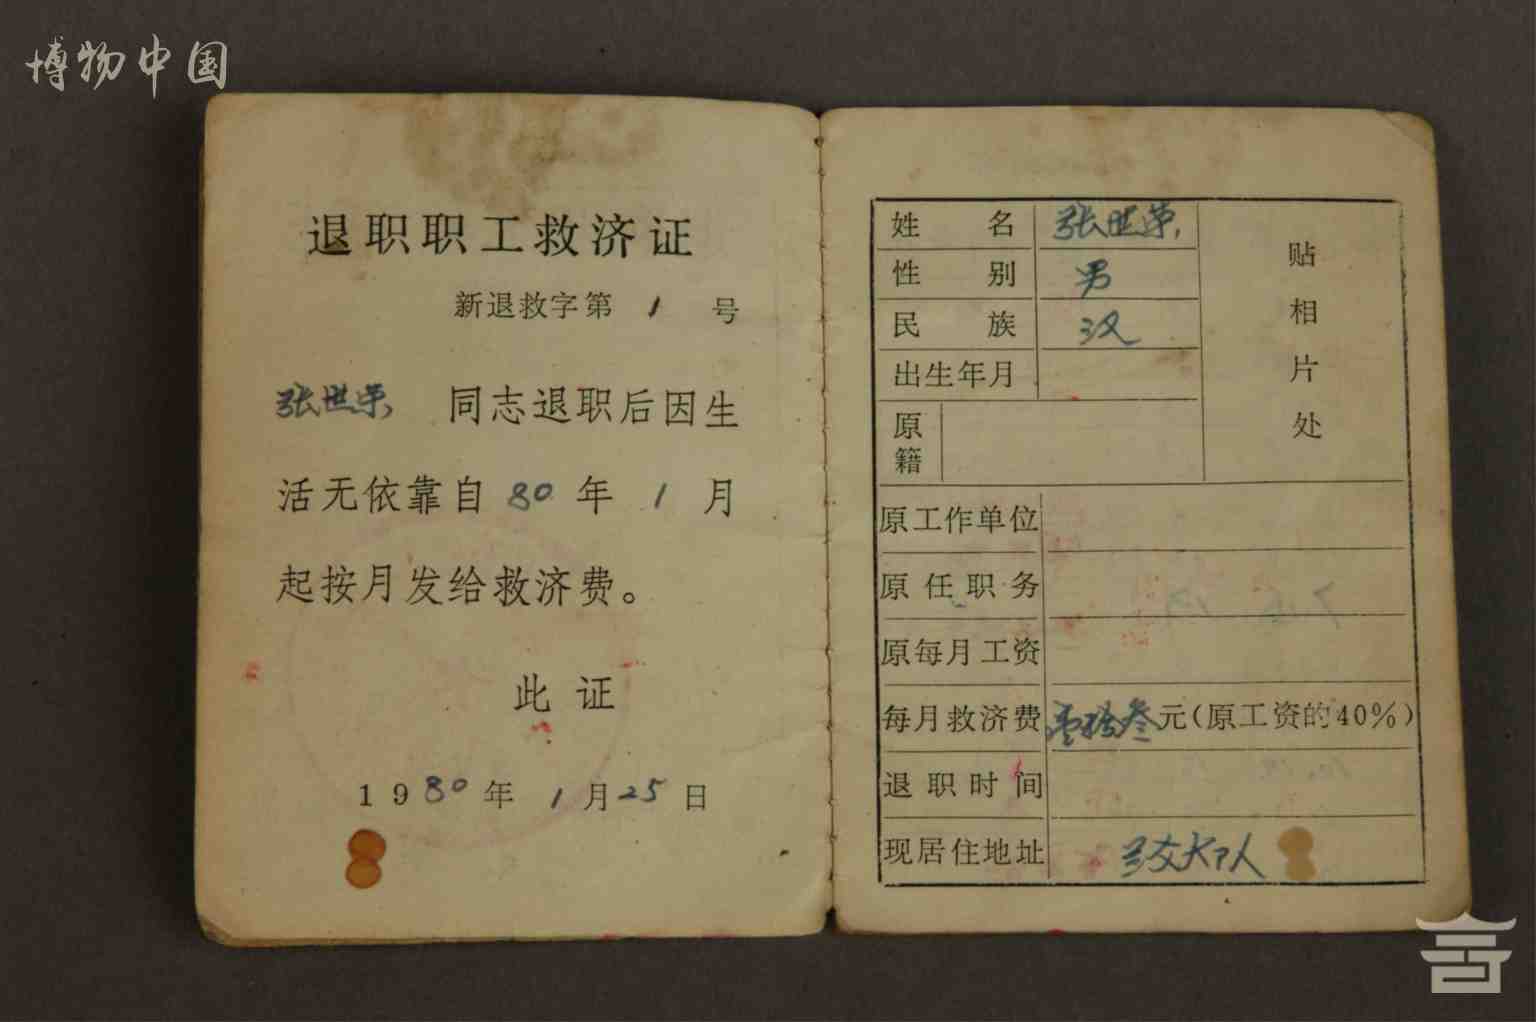 博物中国
退职职工救济证
新退救字第 1 号
张世荣 同志退职后因生
活无依靠自 80 年 1 月
起按月发给救济费。
此证
1980年 1月25日
姓名 张世荣
性别 男
民族 汉
出生年月
原籍
贴相片处
原工作单位
原任职务
原每月工资
每月救济费 壹拾叁元(原工资的40%)
退职时间
现居住地址 大队